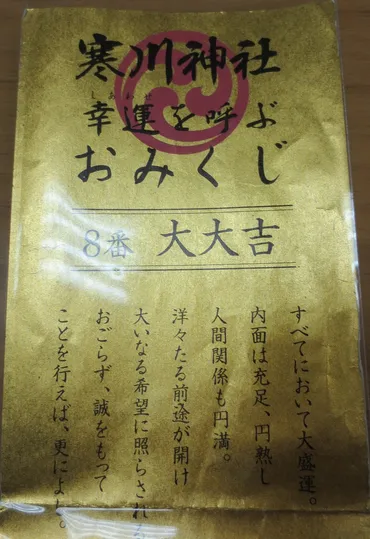 寒川神社
しあわせ
幸運を呼ぶ
おみくじ
8番 大大吉
すべてにおいて大盛運。
内面は充足、円熟し
人間関係も円満。
洋々たる前途が開け
大いなる希望に照らされる
おごらず、誠をもって
ことを行えば、更によし。